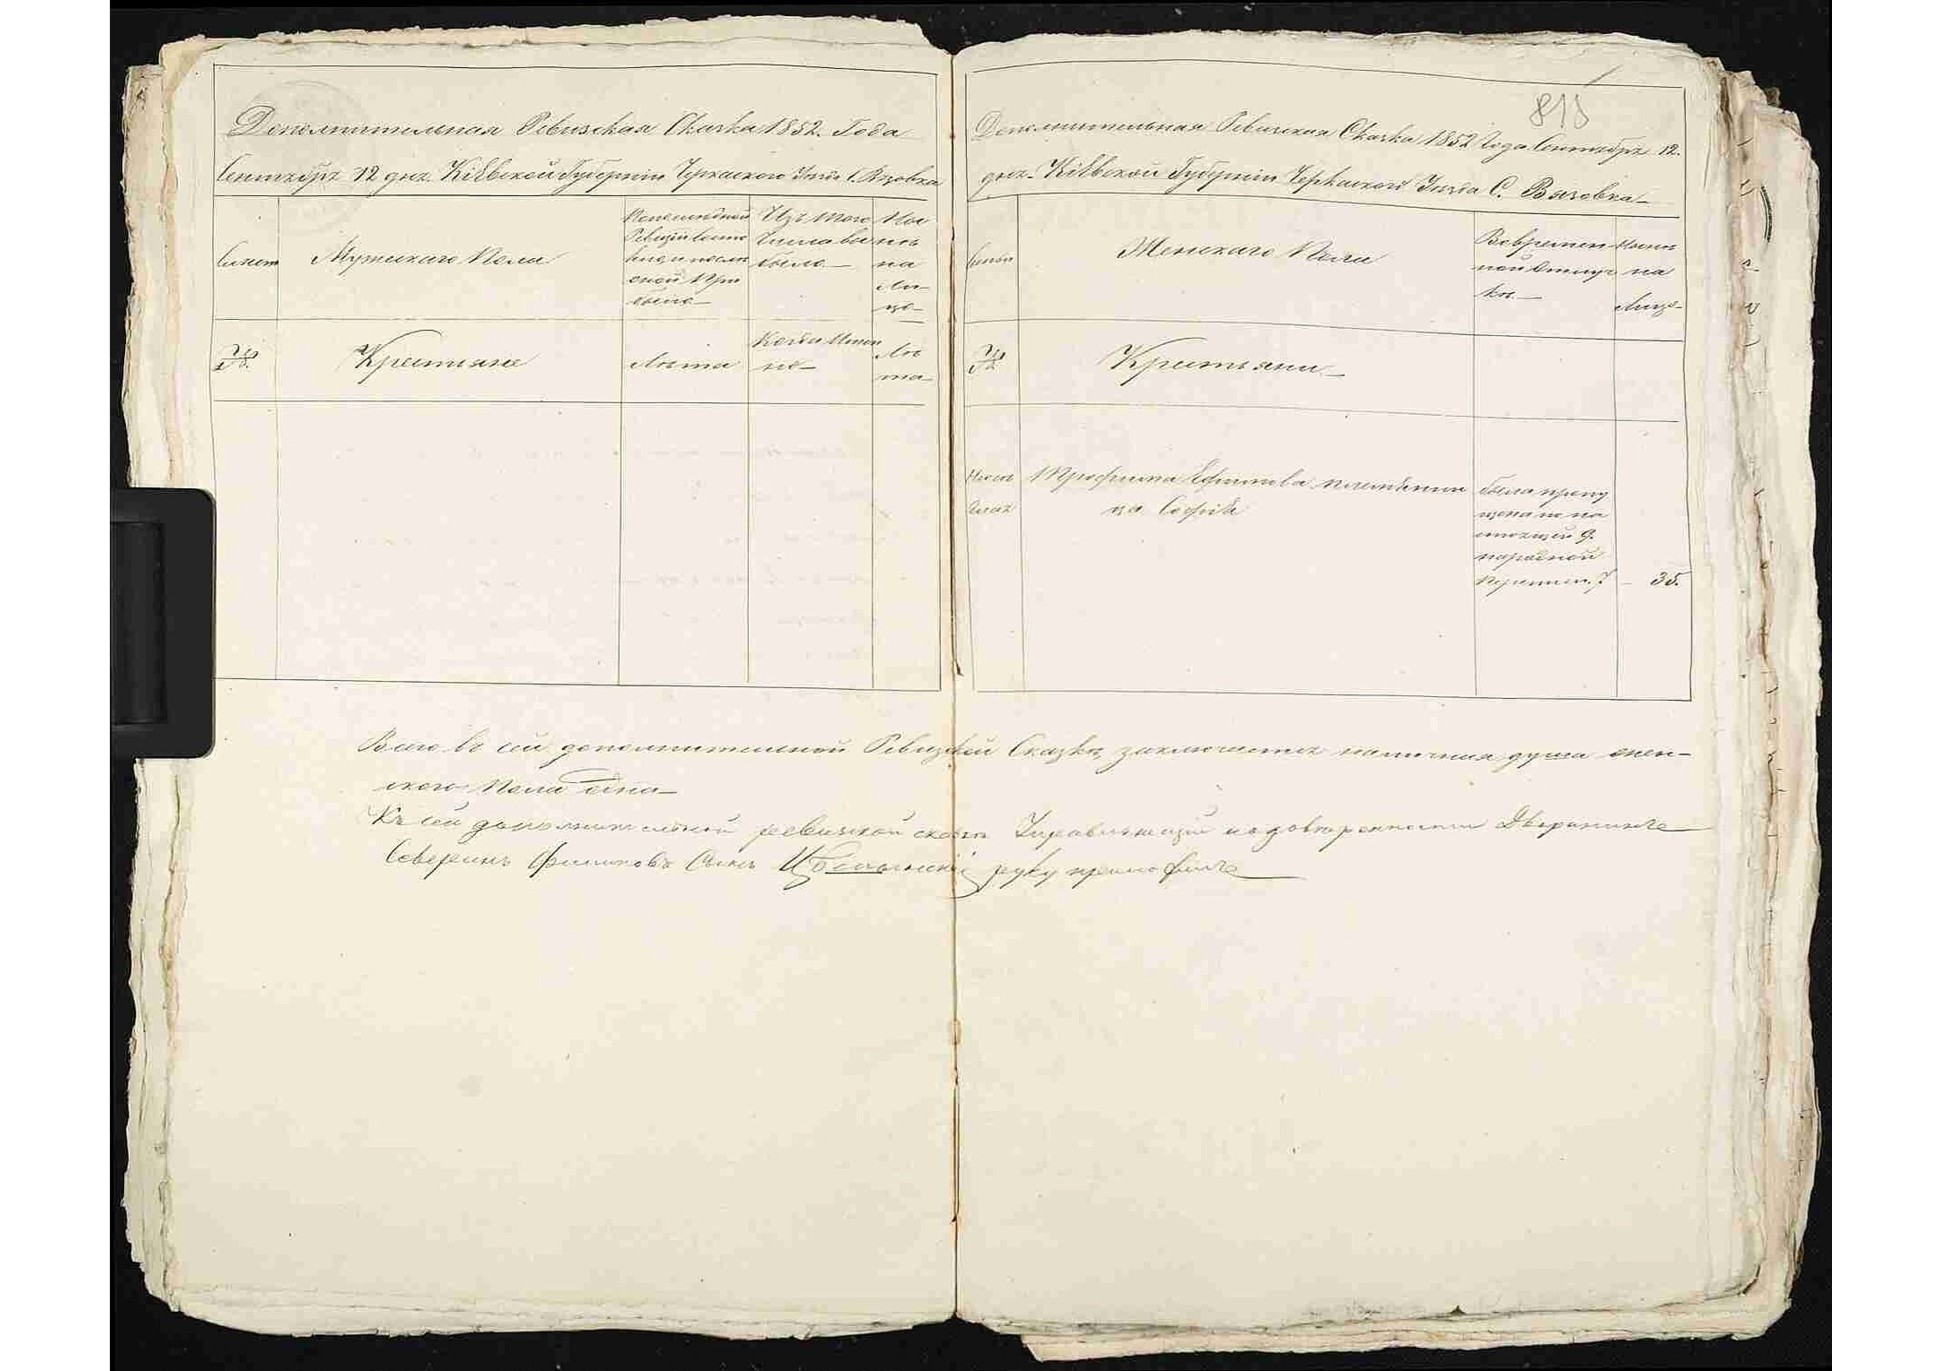 Дополнительная Ревизская Сказка 1852. Года
Сентября 12 дня. Кіевской Губерніи Черкаского Уезда С. Вязовка
Мужескаго Пола
По последней
Ревизіи состо
яло, и после
оной При
было
Изъ того
Числа вы
было
Ны
не
на
Ли
цо
Крестьяне
Лета
Когда Имен
но
Ле
та
815
Дополнительная Ревизская Сказка 1852 Года Сентября 12.
дня. Кіевской Губерніи Черкаской Уезда С. Вязовка
Женскаго Пола
Вовремен
ной отлуч
ке.
Ныне
на
Лицо
Крестьяни
Трофима Ефимова племянни
ца Софія
была пропу
щена по на
стоящей 9.
народной
Переписи.
35.
Всего въ сей дополнительной Ревизской Сказке заключается наличная душа жен-
ского Пола одна
Къ сей дополнительной ревизской сказке Управляющій по доверенности Дворянинъ
Северинъ Филиповъ Сынъ руку приложилъ